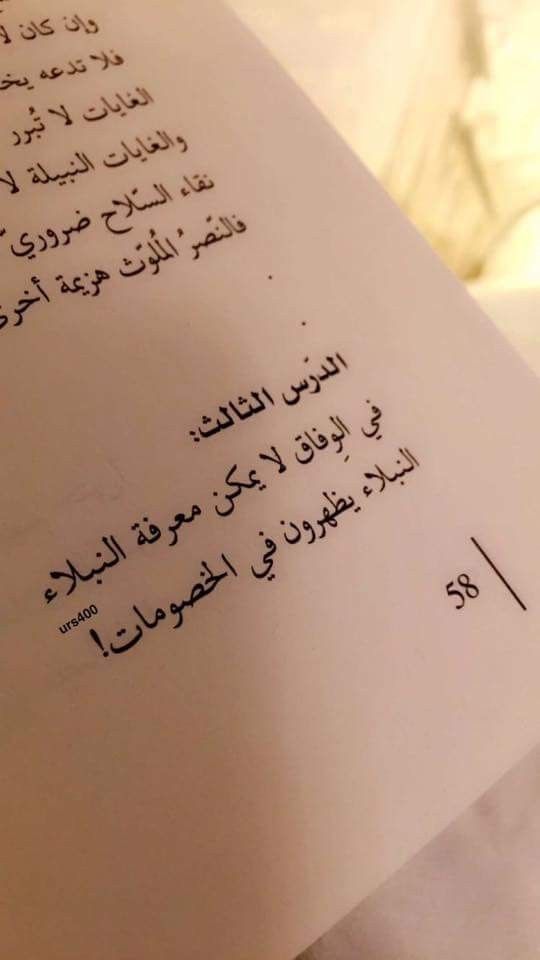 وإن كان
فلا تدعه
الغايات لا تُبرر
والغايات النبيلة لا
نقاء السّلاح ضروريّ
فالنّصرُ المُلوّث هزيمة أخرى
الدّرس الثالث:
في الوِفاق لا يمكن معرفة النبلاء
النبلاء يظهرون في الخصومات!
urs400
58